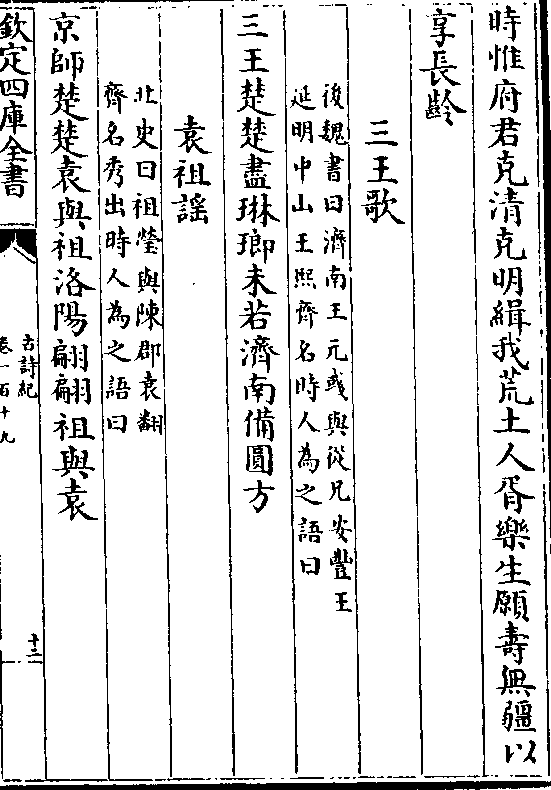 時惟府君克清克明緝我荒土人胥樂生願壽無疆以
享長齡
三王歌
後魏書曰濟南王元彧與從兄安豐王
延明中山王熙齊名時人為之語曰
三王楚楚盡琳瑯未若濟南備圓方
袁祖謡
北史曰祖瑩與陳郡袁翻
齊名秀出時人為之語曰
京師楚楚袁與祖洛陽翩翩祖與袁
欽定四庫全書
古詩紀
卷一百十九
十二